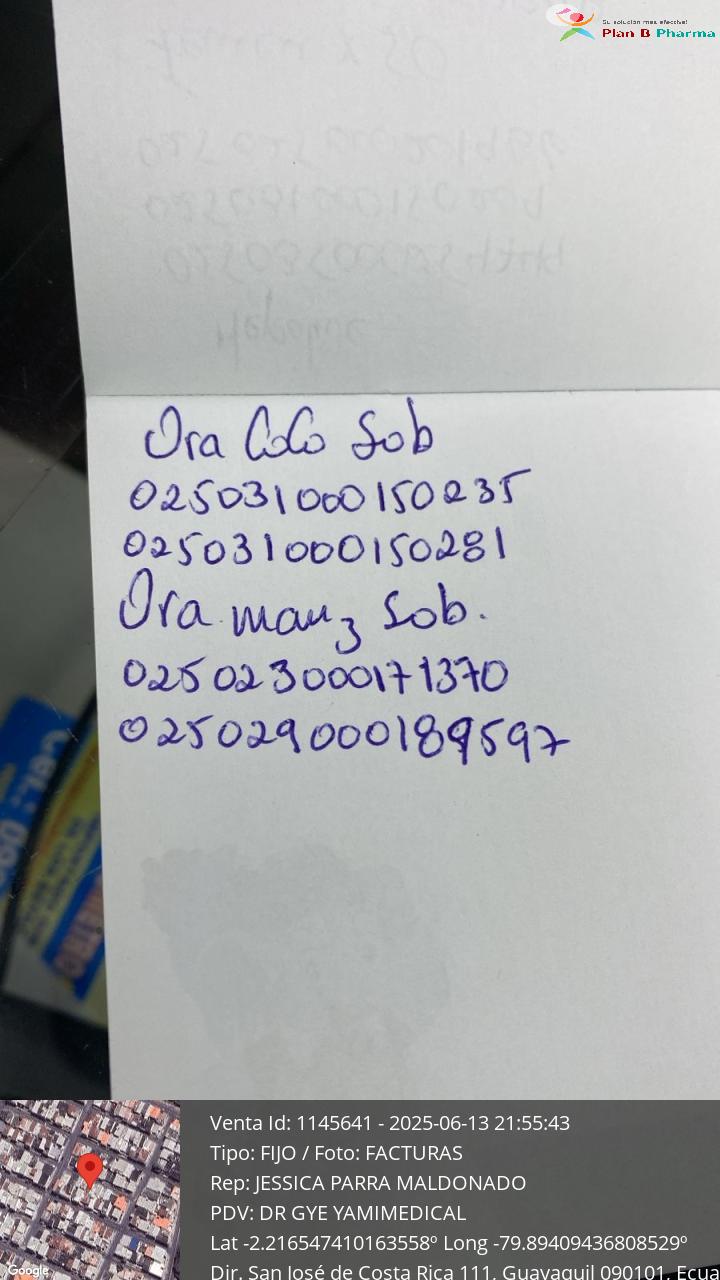 Su solución más efectiva!
Plan B Pharma
Ora CoCo Sob
025031000150235
025031000150281
Ora manz Sob.
025023000171370
025029000189597
Venta Id: 1145641 - 2025-06-13 21:55:43
Tipo: FIJO / Foto: FACTURAS
Rep: JESSICA PARRA MALDONADO
PDV: DR GYE YAMIMEDICAL
Lat -2.216547410163558º Long -79.89409436808529º
Dir. San José de Costa Rica 111, Guayaquil 090101, Ecua
Google